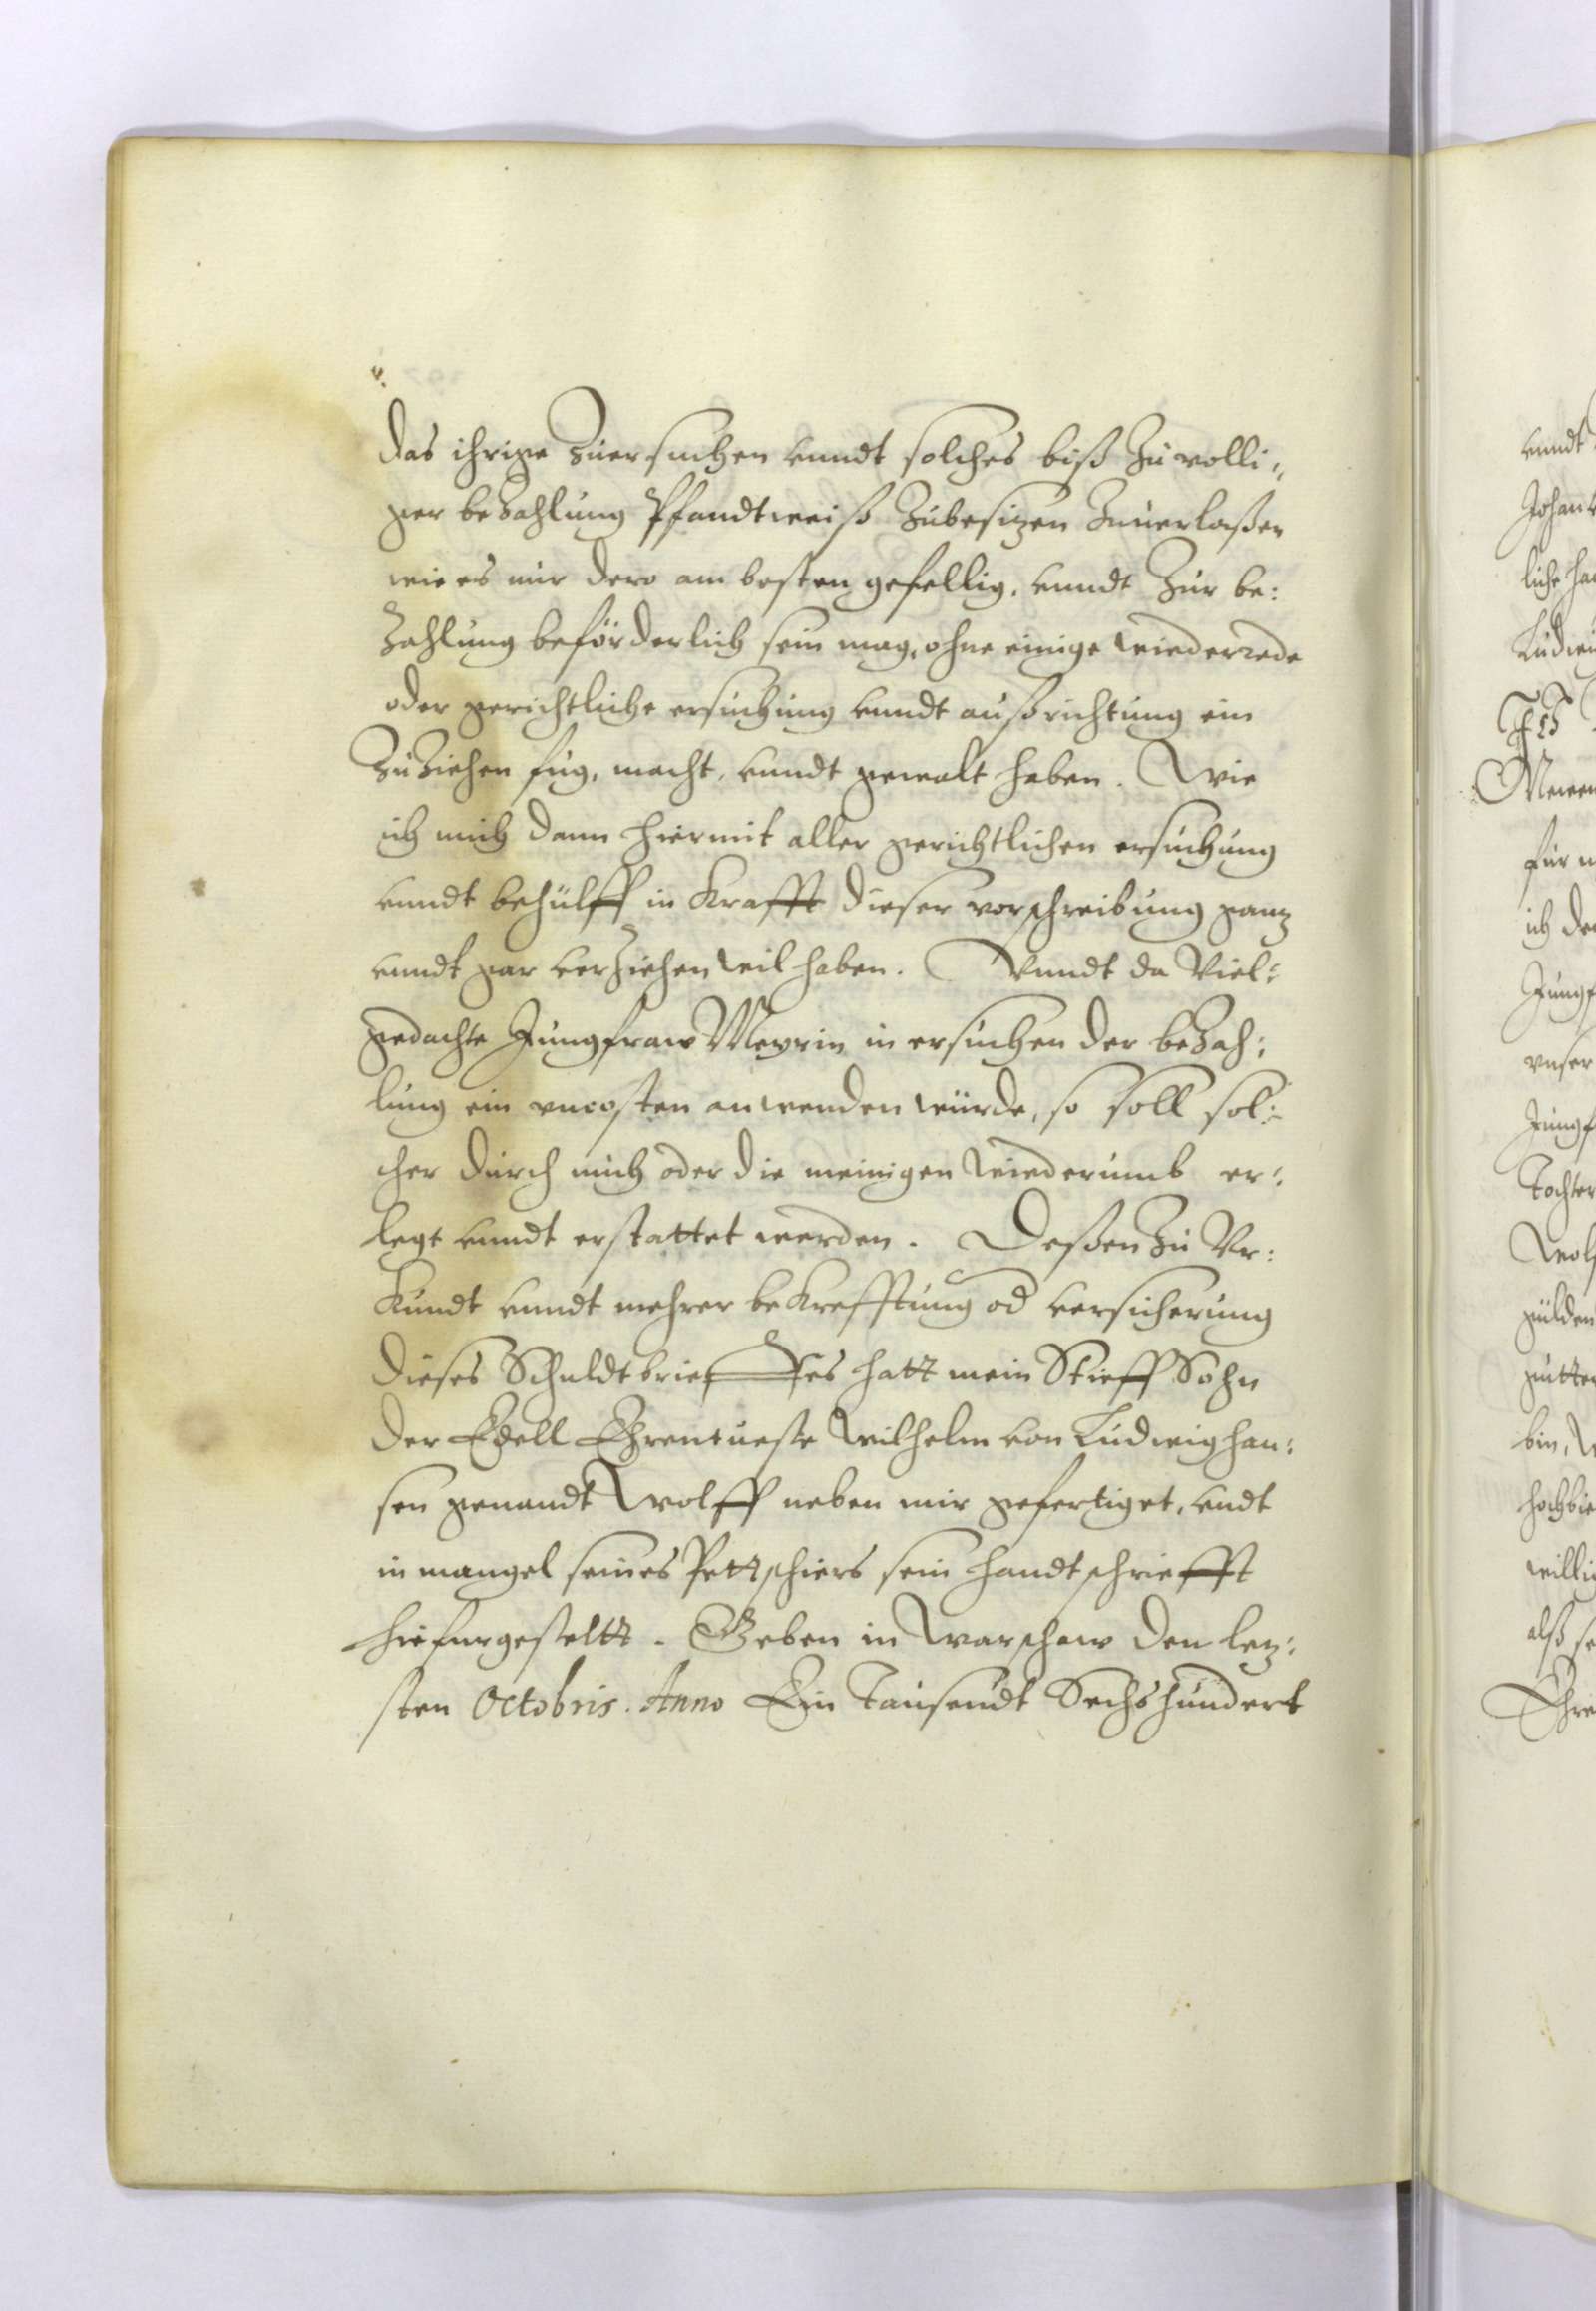 das ihrige zuersuchen vnndt solches biß zu volli„
ger bezahlung Pfandtweiß zubesizen zuuerlaßen
wie es nur dero am besten gefellig, vnndt zur be:
zahlung beförderlich sein mag, ohne einige wiederrede
oder gerichtliche ersuchung vnndt außrichtung ein
zuziehen fug, macht, vnndt gewalt haben. Wie
ich mich dann hiermit aller gerichtlichen ersuchung
vnndt behülff in Krafft dieser vorschreibung ganz
vnndt gar verziehen wil haben. Vnndt da Viel:
gedachte Jungfraw Meyrin in ersuchen der bezah:
lung ein vncosten anwenden würde, so soll sol:
cher durch mich oder die meinigen wiederumb er:
legt vnndt erstattet werden. Deßen zu Vr:
kundt vnndt mehrer bekrefftung od versicherung
dieses Schuldtbrieffes hatt mein Stieff Sohn
der Edell Ehrentueste Wilhelm von Ludwighau:
sen genandt Wolff neben mir gefertiget, vndt
in mangel seines Pettschiers sein handtschriefft
hiefurgesteltt. Geben in Warschaw den lez:
sten Octobris. Anno Ein Tausendt Sechshundert
vnndt
Johan
liche
Ludwi
für
ich
Jungf
vnser
Jungf
Tochter
Wolf
gülden
gutte
bin,
hochbie
willi
alß
Ehre